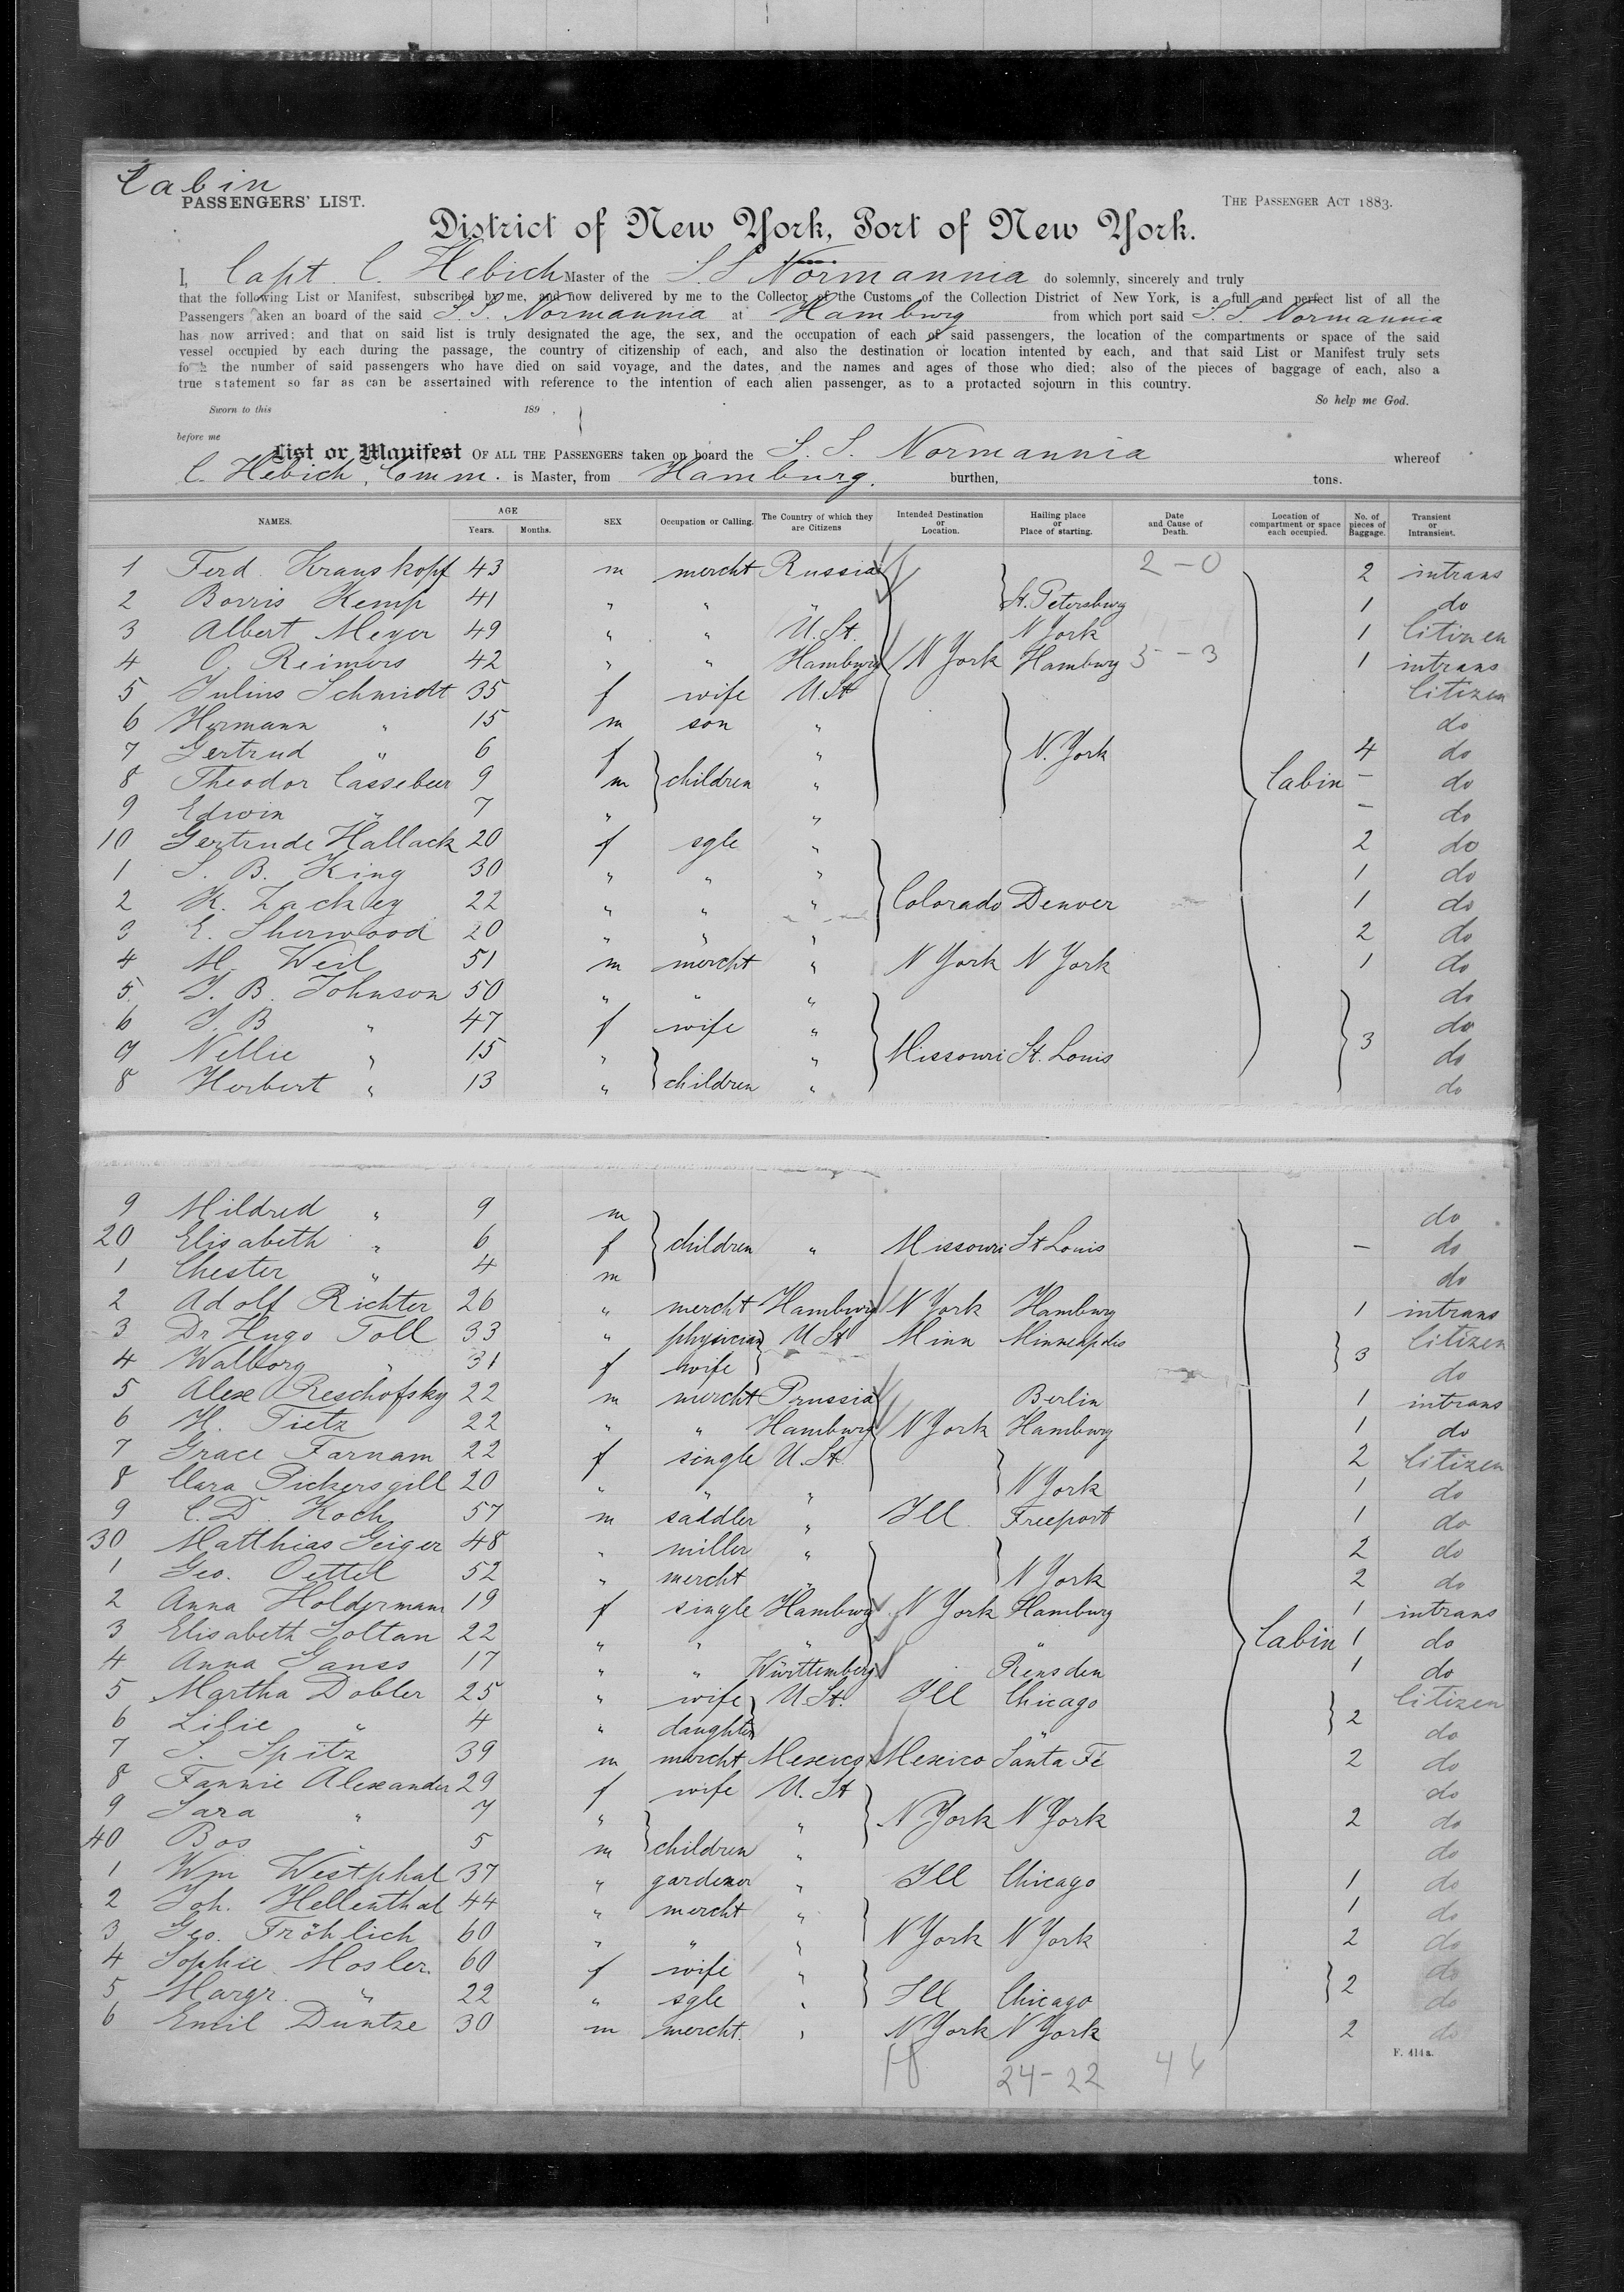 Cabin
PASSENGERS' LIST.
THE PASSENGER ACT 1883.
District of New York, Port of New York.
I, Capt. C. Hebich Master of the S.S. Normannia do solemnly, sincerely and truly
that the following List or Manifest, subscribed by me, and now delivered by me to the Collector of the Customs of the Collection District of New York, is a full and perfect list of all the
Passengers aken an board of the said S.S. Normannia at Hamburg from which port said S.S. Normannia
has now arrived; and that on said list is truly designated the age, the sex, and the occupation of each of said passengers, the location of the compartments or space of the said
vessel occupied by each during the passage, the country of citizenship of each, and also the destination or location intented by each, and that said List or Manifest truly sets
the number of said passengers who have died on said voyage, and the dates, and the names and ages of those who died; also of the pieces of baggage of each, also a
true statement so far as can be assertained with reference to the intention of each alien passenger, as to a protacted sojourn in this country.
So help me God.
Sworn to this 189 ,
before me
List or Manifest OF ALL THE PASSENGERS taken on board the S. S. Normannia whereof
C. Hebich, Comm. is Master, from Hamburg. burthen, tons.
NAMES. AGE Years. Months. SEX Occupation or Calling. The Country of which they are Citizens Intended Destination or Location. Hailing place or Place of starting. Date and Cause of Death. Location of compartment or space each occupied. No. of pieces of Baggage. Transient or Intransient.
1 Ferd. Krauskopf 43 m mercht Russia 2-0 2 intrans
2 Borris Kemp 41 " " " St. Petersburg 1 do
3 Albert Meyer 49 " " U. St. N York 1 Citizen
4 O. Reimers 42 " " Hamburg N York Hamburg 5-3 1 intrans
5 Julius Schmidt 35 f wife U St Citizen
6 Hermann " 15 m son " do
7 Gertrud " 6 f " N. York 4 do
8 Theodor Cassebeer 9 m children " Cabin - do
9 Edwin " 7 " " - do
10 Gertrude Hallack 20 f sgle " 2 do
1 S. B. King 30 " " " 1 do
2 K. Zackey 22 " " " Colorado Denver 1 do
3 E. Sherwood 20 " " " 2 do
4 M. Weil 51 m mercht " N York N York 1 do
5 J. B. Johnson 50 " " " do
6 J. B " 47 f wife " do
7 Nellie " 15 " " Missouri St. Louis 3 do
8 Herbert " 13 " children " do
9 Mildred " 9 m do
20 Elisabeth " 6 f children " Missouri St Louis - do
1 Chester " 4 m do
2 Adolf Richter 26 " mercht Hamburg N York Hamburg 1 intrans
3 Dr Hugo Toll 33 " physician U St Minn Minneapolis Citizen
4 Walborg " 31 f wife 3 do
5 Alex Reschofsky 22 m mercht Prussia Berlin 1 intrans
6 H. Tietz 22 " " Hamburg N York Hamburg 1 do
7 Grace Farnam 22 f single U. St. 2 Citizen
8 Clara Pickersgill 20 " " " N York 1 do
9 C. D. Koch 57 m saddler " Ill Freeport 1 do
30 Matthias Geiger 48 " miller " 2 do
1 Geo. Oettel 52 " mercht " N York 2 do
2 Anna Holdermann 19 f single Hamburg N York Hamburg 1 intrans
3 Elisabeth Soltau 22 " " " " Cabin 1 do
4 Anna Ganss 17 " " Württemberg 1 do
5 Martha Dobler 25 " wife U. St. Ill Chicago Citizen
6 Lilie " 4 " daughter " 2 do
7 S. Spitz 39 m mercht Mexico Mexico Santa Fé 2 do
8 Fannie Alexander 29 f wife U. St do
9 Sara " 7 " " N York N York 2 do
40 Bos " 5 m children " do
1 Wm Westphal 37 " gardener " Ill Chicago 1 do
2 Joh. Hellenthal 44 " mercht " 1 do
3 Geo. Fröhlich 60 " " " N York N York 2 do
4 Sophie Mosler. 60 f wife " do
5 Margr. " 22 " sgle " Ill Chicago 2 do
6 Emil Duntze 30 m mercht. " N York N York 2 do
24-22 46
F. 414a.